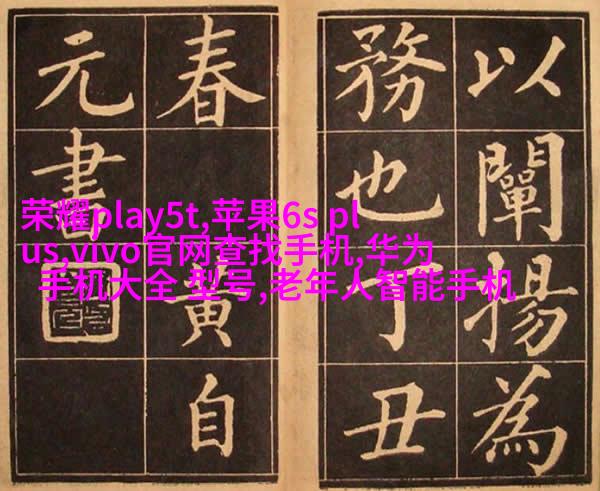 以闡揚為
務也丁丑
春黃自
元書
荣耀play5t,苹果6s pl
us,vivo官网查找手机,华为
手机大全 型号,老年人智能手机